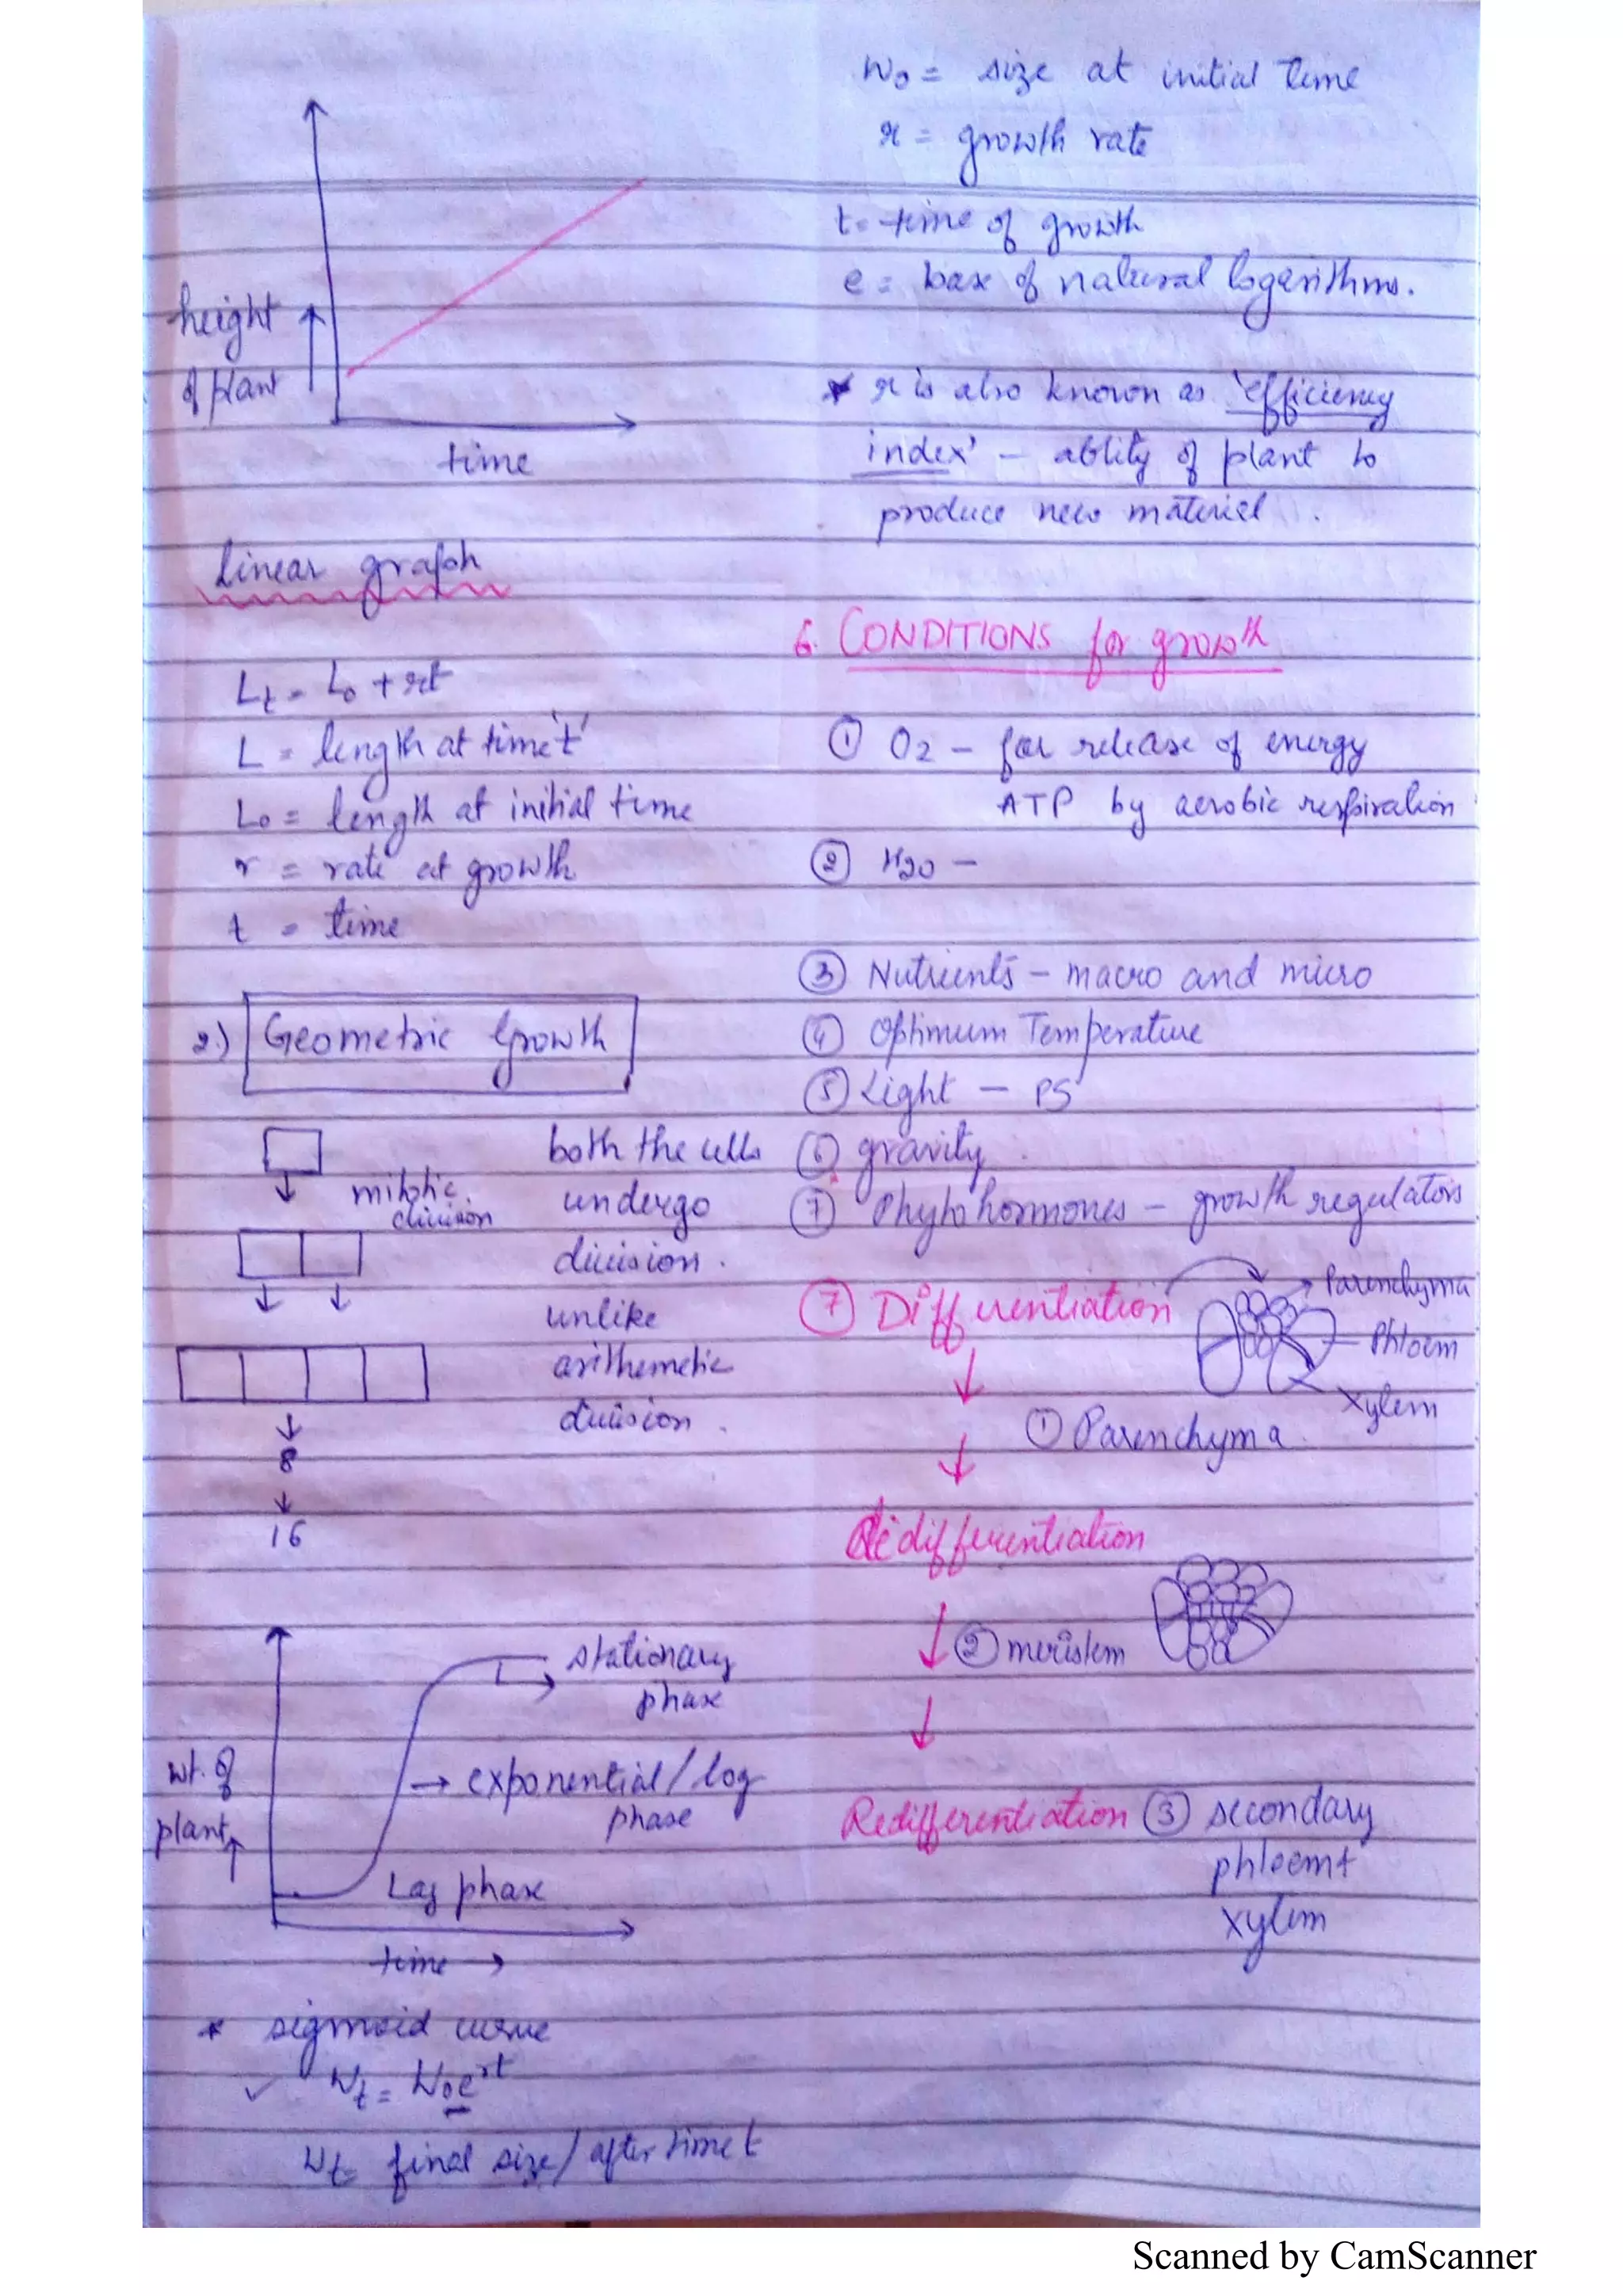 height
of plant
time
linear graph
Lt = Lo + rt
L = length at time 't'
Lo = length at initial time
r = rate at growth
t = time
2.) Geometric Growth
both the cells
mitotic
division
undergo
division.
unlike
arithemetic
division.
8
16
stationary
phase
wt. of
plant
exponential/log
phase
Lag phase
time
* sigmoid curve
Wt = Woe^rt
Wt = final size/after time t
Wo = size at initial time
r = growth rate
t = time of growth
e = base of natural logarithms.
* r is also known as 'efficiency
index' - ablity of plant to
produce new material.
6. CONDITIONS for growth
① O2 - for release of energy
ATP by aerobic respiration
② H2O -
③ Nutrients - macro and micro
④ Optimum Temperature
⑤ Light - PS
⑥ gravity.
⑦ Phytohormones - growth regulators
⑦ Differentiation
Parenchyma
Phloem
Xylem
① Parenchyma.
Dedifferentiation
② meristem
Redifferentiation ③ secondary
phloem +
xylem
Scanned by CamScanner